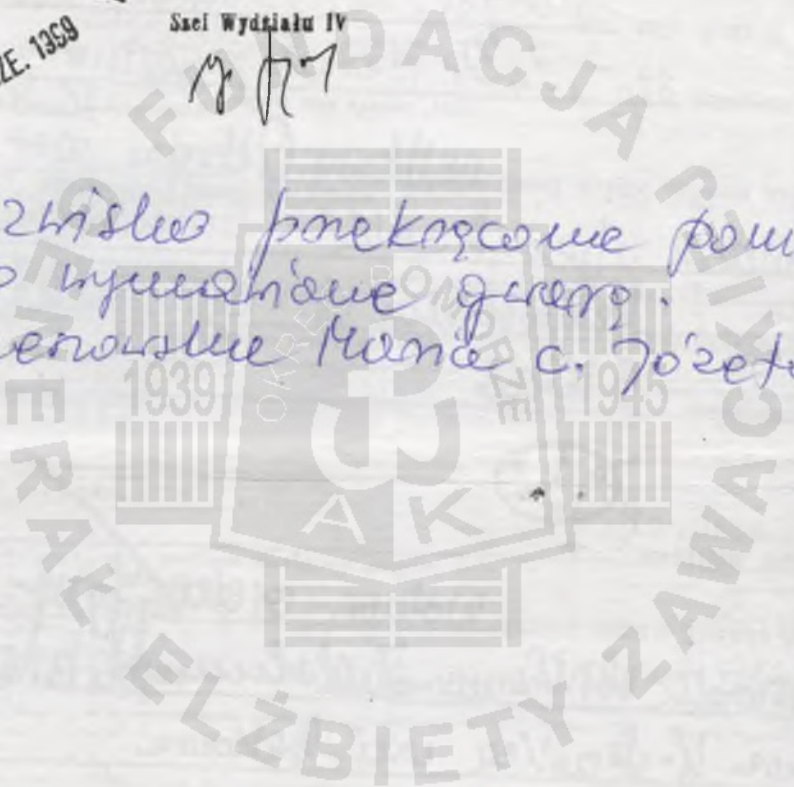 ZE. 1359
Szef Wydziału IV
zwisko przekręcone pow
o wymawiane gwarą.
enowska Maria c. Józefa
FUNDACJA GENERAŁ ELŻBIETY ZAWACKIEJ
OKRĘG POMORZE
1939 1945
AK